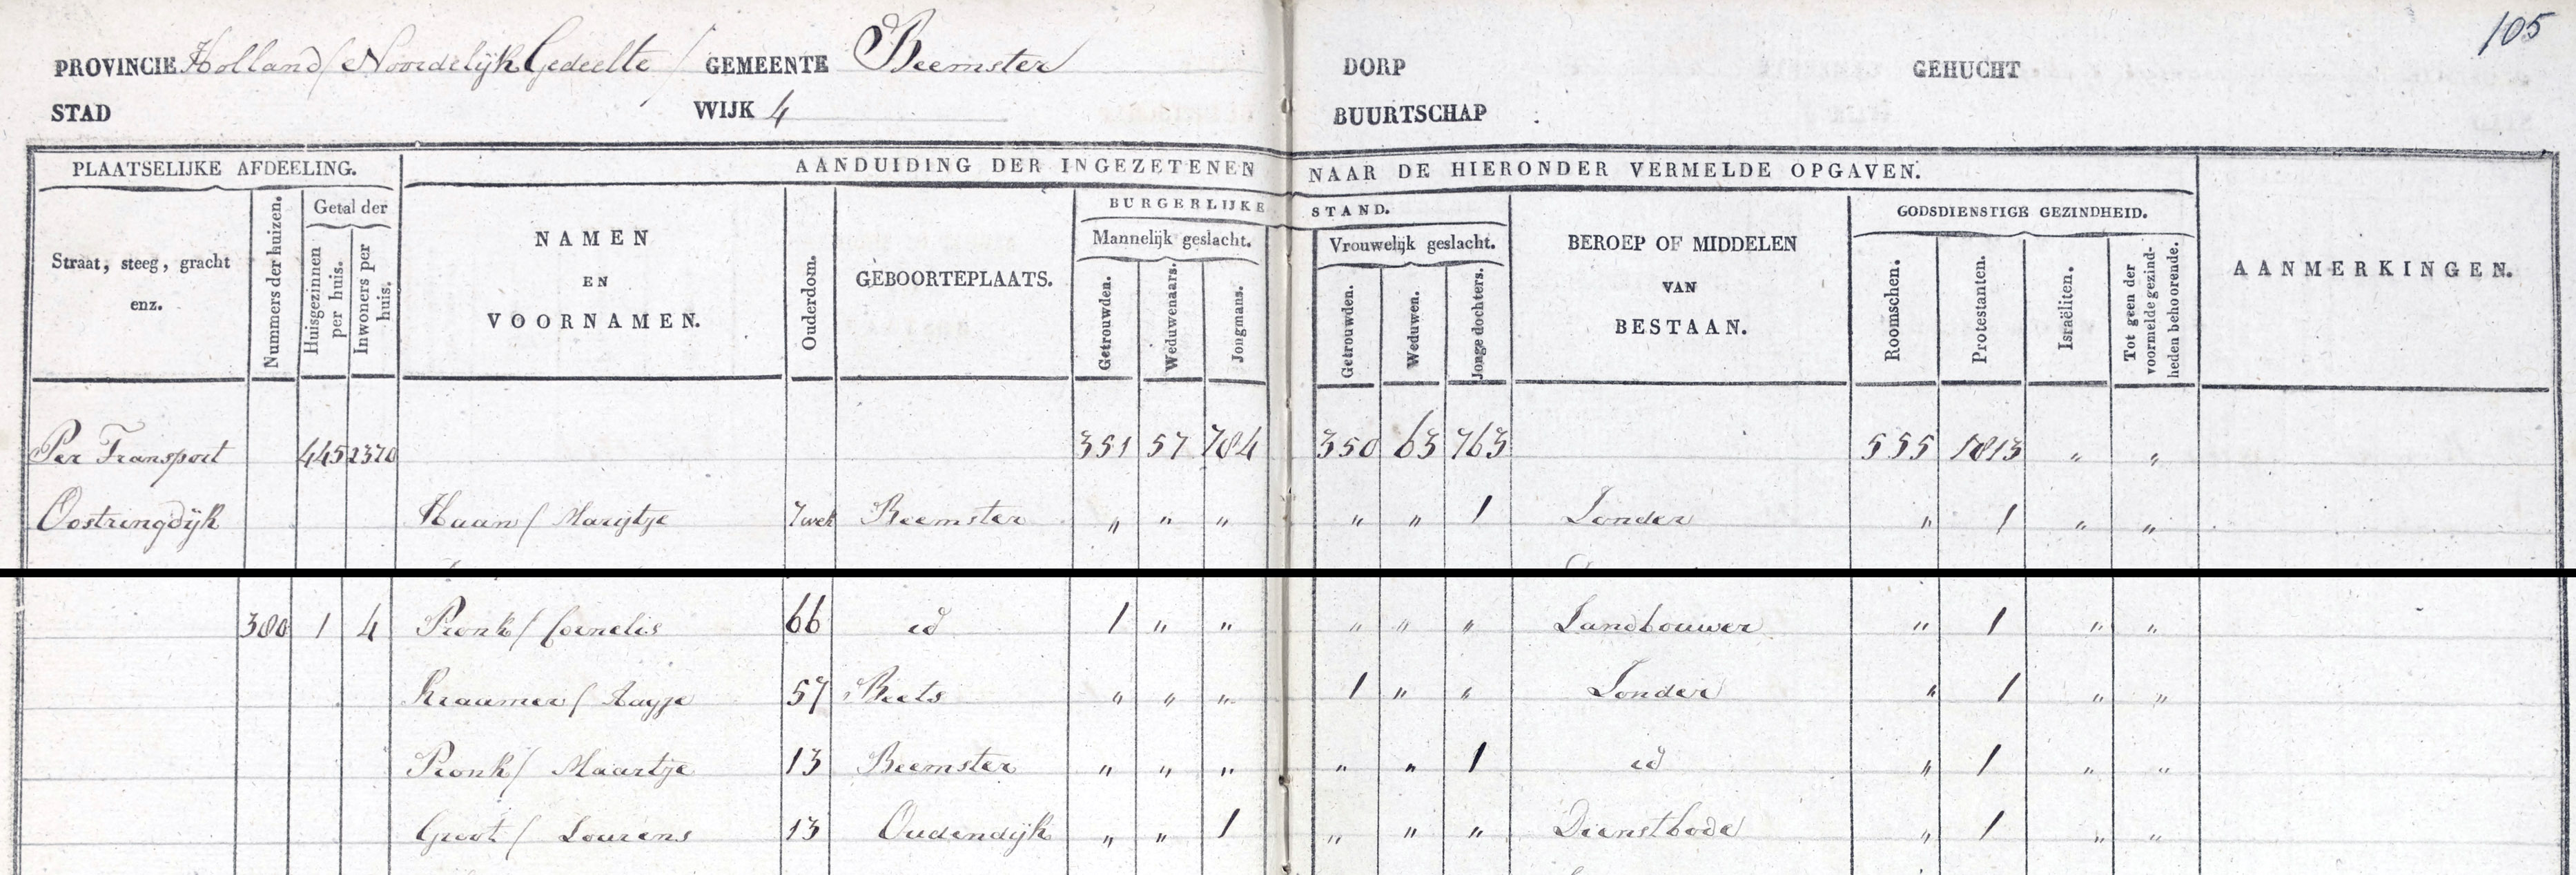 105
PROVINCIE Holland / Noordelijk Gedeelte / GEMEENTE Beemster DORP GEHUCHT
STAD WIJK 4 BUURTSCHAP
PLAATSELIJKE AFDEELING. AANDUIDING DER INGEZETENEN NAAR DE HIERONDER VERMELDE OPGAVEN.
Straat, steeg, gracht enz.
Nummers der huizen.
Getal der
Huisgezinnen per huis.
Inwoners per huis.
NAMEN
EN
VOORNAMEN.
Ouderdom.
GEBOORTEPLAATS.
BURGERLIJKE STAND.
Mannelijk geslacht.
Getrouwden.
Weduwenaars.
Jongmans.
Vrouwelijk geslacht.
Getrouwden.
Weduwen.
Jonge dochters.
BEROEP OF MIDDELEN
VAN
BESTAAN.
GODSDIENSTIGE GEZINDHEID.
Roomschen.
Protestanten.
Israëliten.
Tot geen der voormelde gezindheden behoorende.
AANMERKINGEN.
Per Transport 445 2370 351 57 784 350 63 763 555 1813 " "
Oostringdijk Haan / Marijtje 7 wek Beemster " " " " " 1 Zonder " 1 " "
380 1 4 Pronk / Cornelis 66 id 1 " " " " " Landbouwer " 1 " "
Kraamer / Aagje 57 Beets " " " 1 " " Zonder " 1 " "
Pronk / Maartje 13 Beemster " " " " " 1 id " 1 " "
Groot / Lourens 13 Oudendijk " " 1 " " " Dienstbode " 1 " "